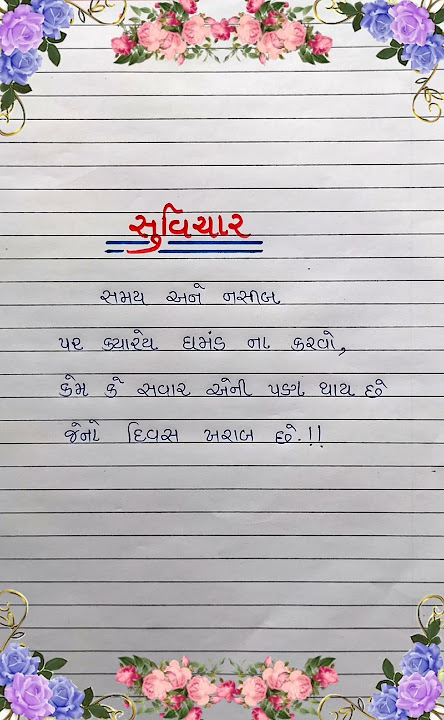 સુવિચાર
સમય અને નસીબ
પર ક્યારેય ઘમંડ ના કરવો,
કેમ કે સવાર એની પણ થાય છે
જેનો દિવસ ખરાબ છે.!!